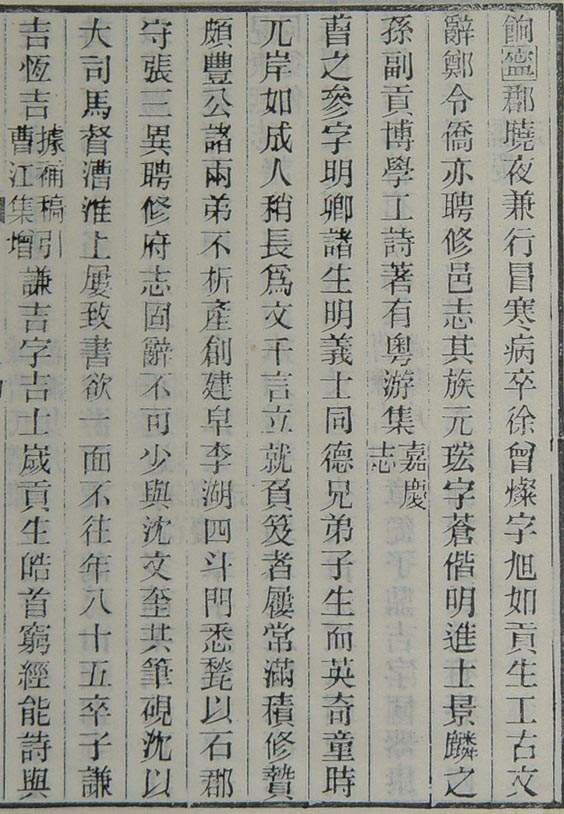 餉寧郡曉夜兼行冒寒病卒徐曾燦字旭如貢生工古文
辭鄭令僑亦聘修邑志其族元珓字蒼偕明進士景麟之
孫副貢博學工詩著有粵游集嘉慶志
曹之參字明卿諸生明義士同德兄弟子生而英奇童時
兀岸如成人稍長爲文千言立就負笈者屨常滿積修贄
頗豐公諸兩弟不析產創建皁李湖四斗門悉甃以石郡
守張三異聘修府志固辭不可少與沈文奎共筆硯沈以
大司馬督漕淮上屢致書欲一面不往年八十五卒子謙
吉恆吉據補稿引曹江集增謙吉字吉士歲貢生皓首窮經能詩與